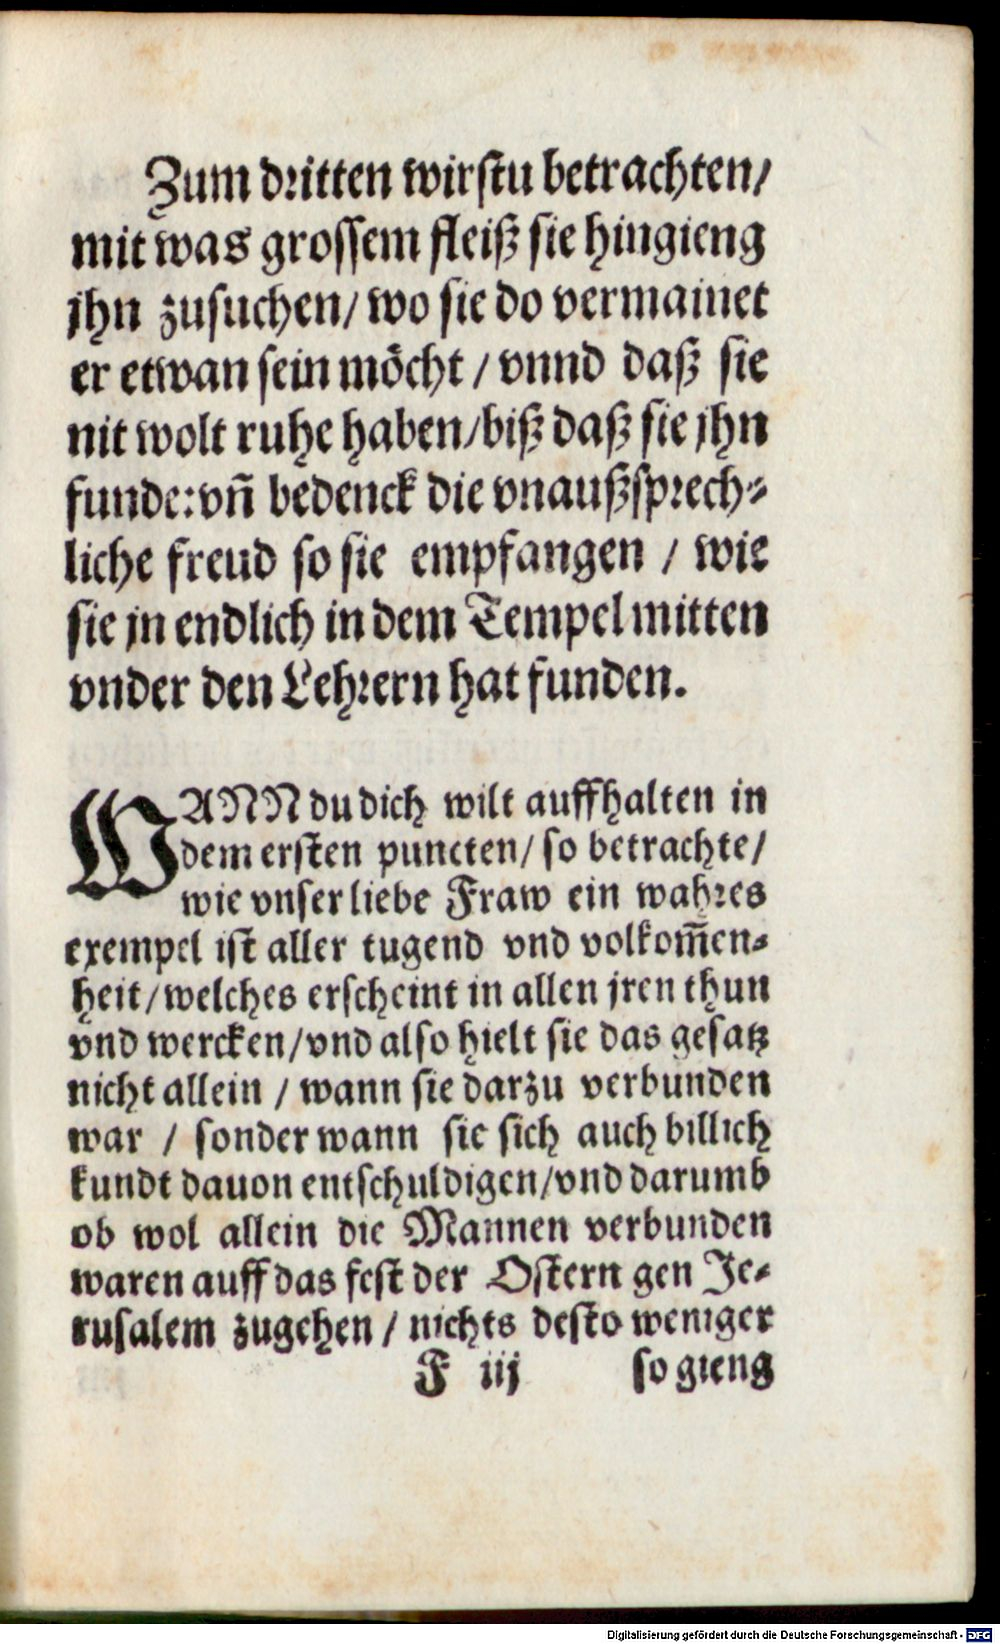 Zum dritten wirstu betrachten/
mit was grossem fleiß sie hingieng
jhn zusuchen/ wo sie do vermainet
er etwan sein möcht / vnnd daß sie
nit wolt ruhe haben/biß daß sie jhn
funde: vñ bedenck die vnaußsprech-
liche freud so sie empfangen / wie
sie jn endlich in dem Tempel mitten
vnder den Lehrern hat funden.
WANN du dich wilt auffhalten in
dem ersten puncten/ so betrachte/
wie vnser liebe Fraw ein wahres
exempel ist aller tugend vnd volkom̄en-
heit/welches erscheint in allen jren thun
vnd wercken/vnd also hielt sie das gesatz
nicht allein / wann sie darzu verbunden
war / sonder wann sie sich auch billich
kundt dauon entschuldigen/vnd darumb
ob wol allein die Mannen verbunden
waren auff das fest der Ostern gen Je-
rusalem zugehen / nichts desto weniger
F iij so gieng
Digitalisierung gefördert durch die Deutsche Forschungsgemeinschaft - DFG